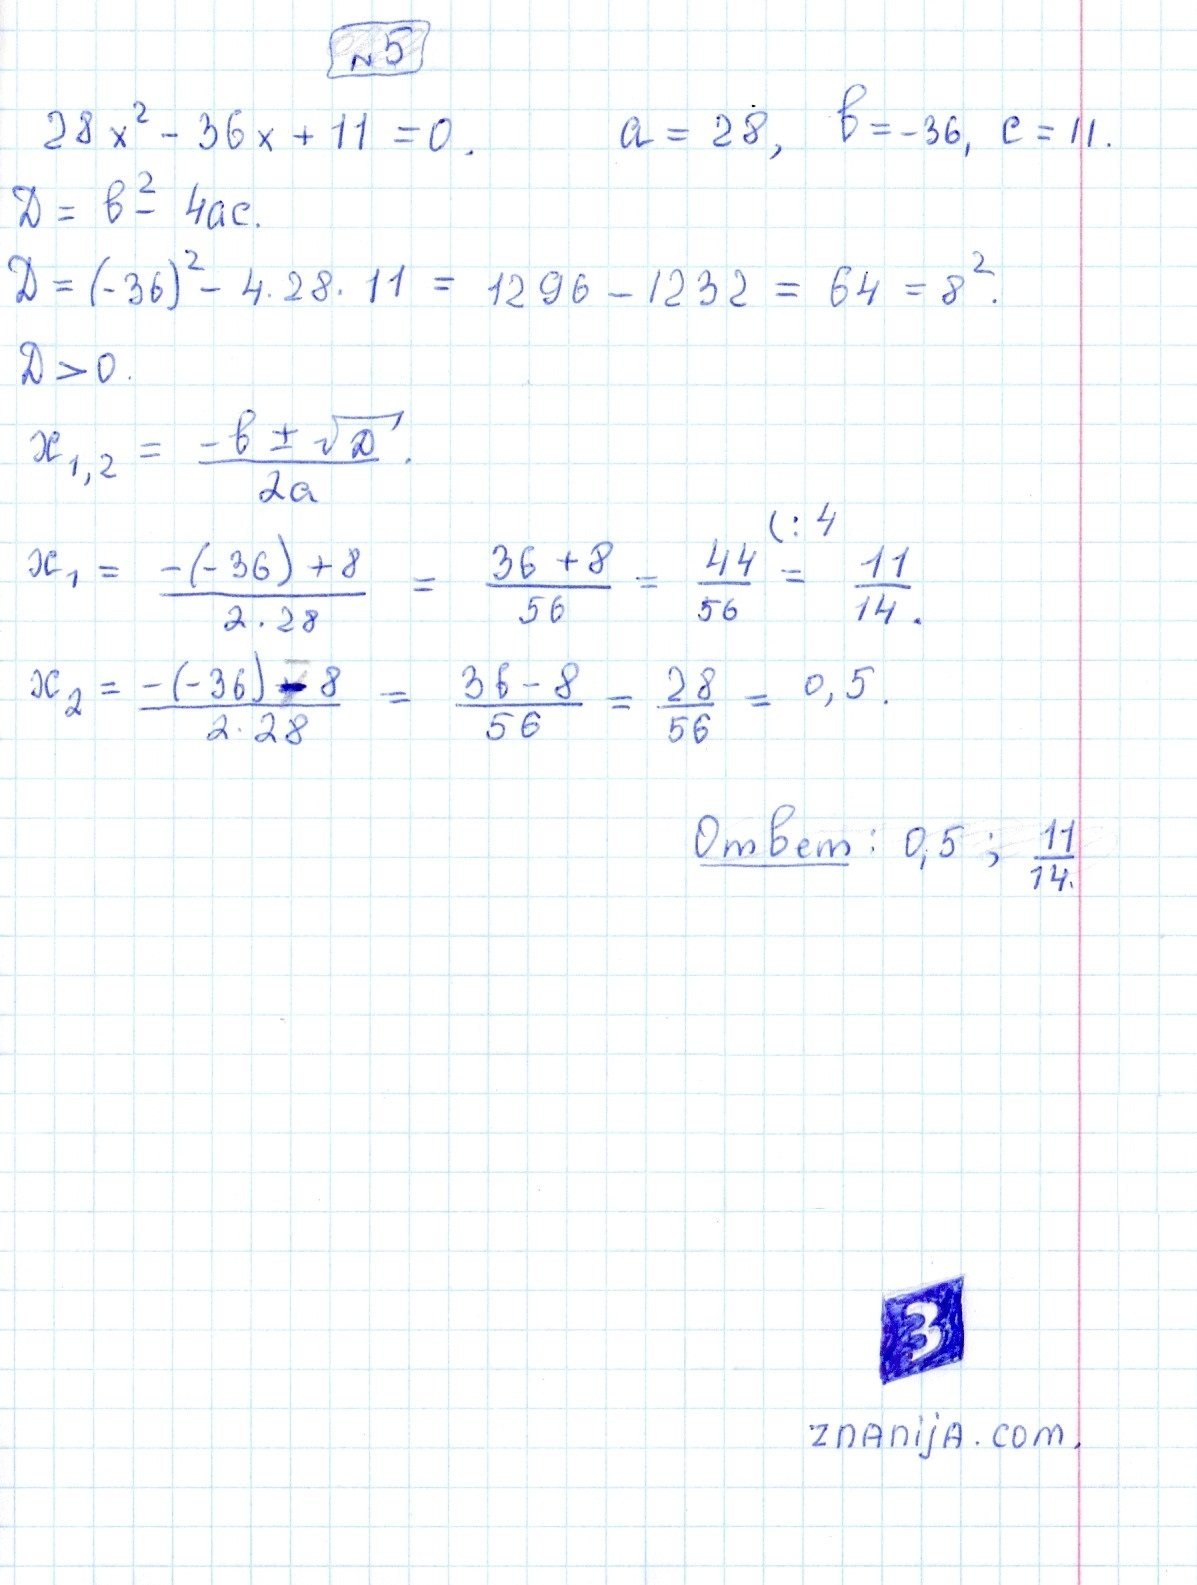 №5
28x² - 36x + 11 = 0. a = 28, b = -36, c = 11.
D = b² - 4ac.
D = (-36)² - 4·28·11 = 1296 - 1232 = 64 = 8².
D > 0.
x₁,₂ = (-b ± √D) / 2a.
x₁ = (-(-36) + 8) / (2·28) = (36 + 8) / 56 = 44/56 (:4 = 11/14.
x₂ = (-(-36) - 8) / (2·28) = (36 - 8) / 56 = 28/56 = 0,5.
Ответ: 0,5; 11/14.
З
znanija.com.